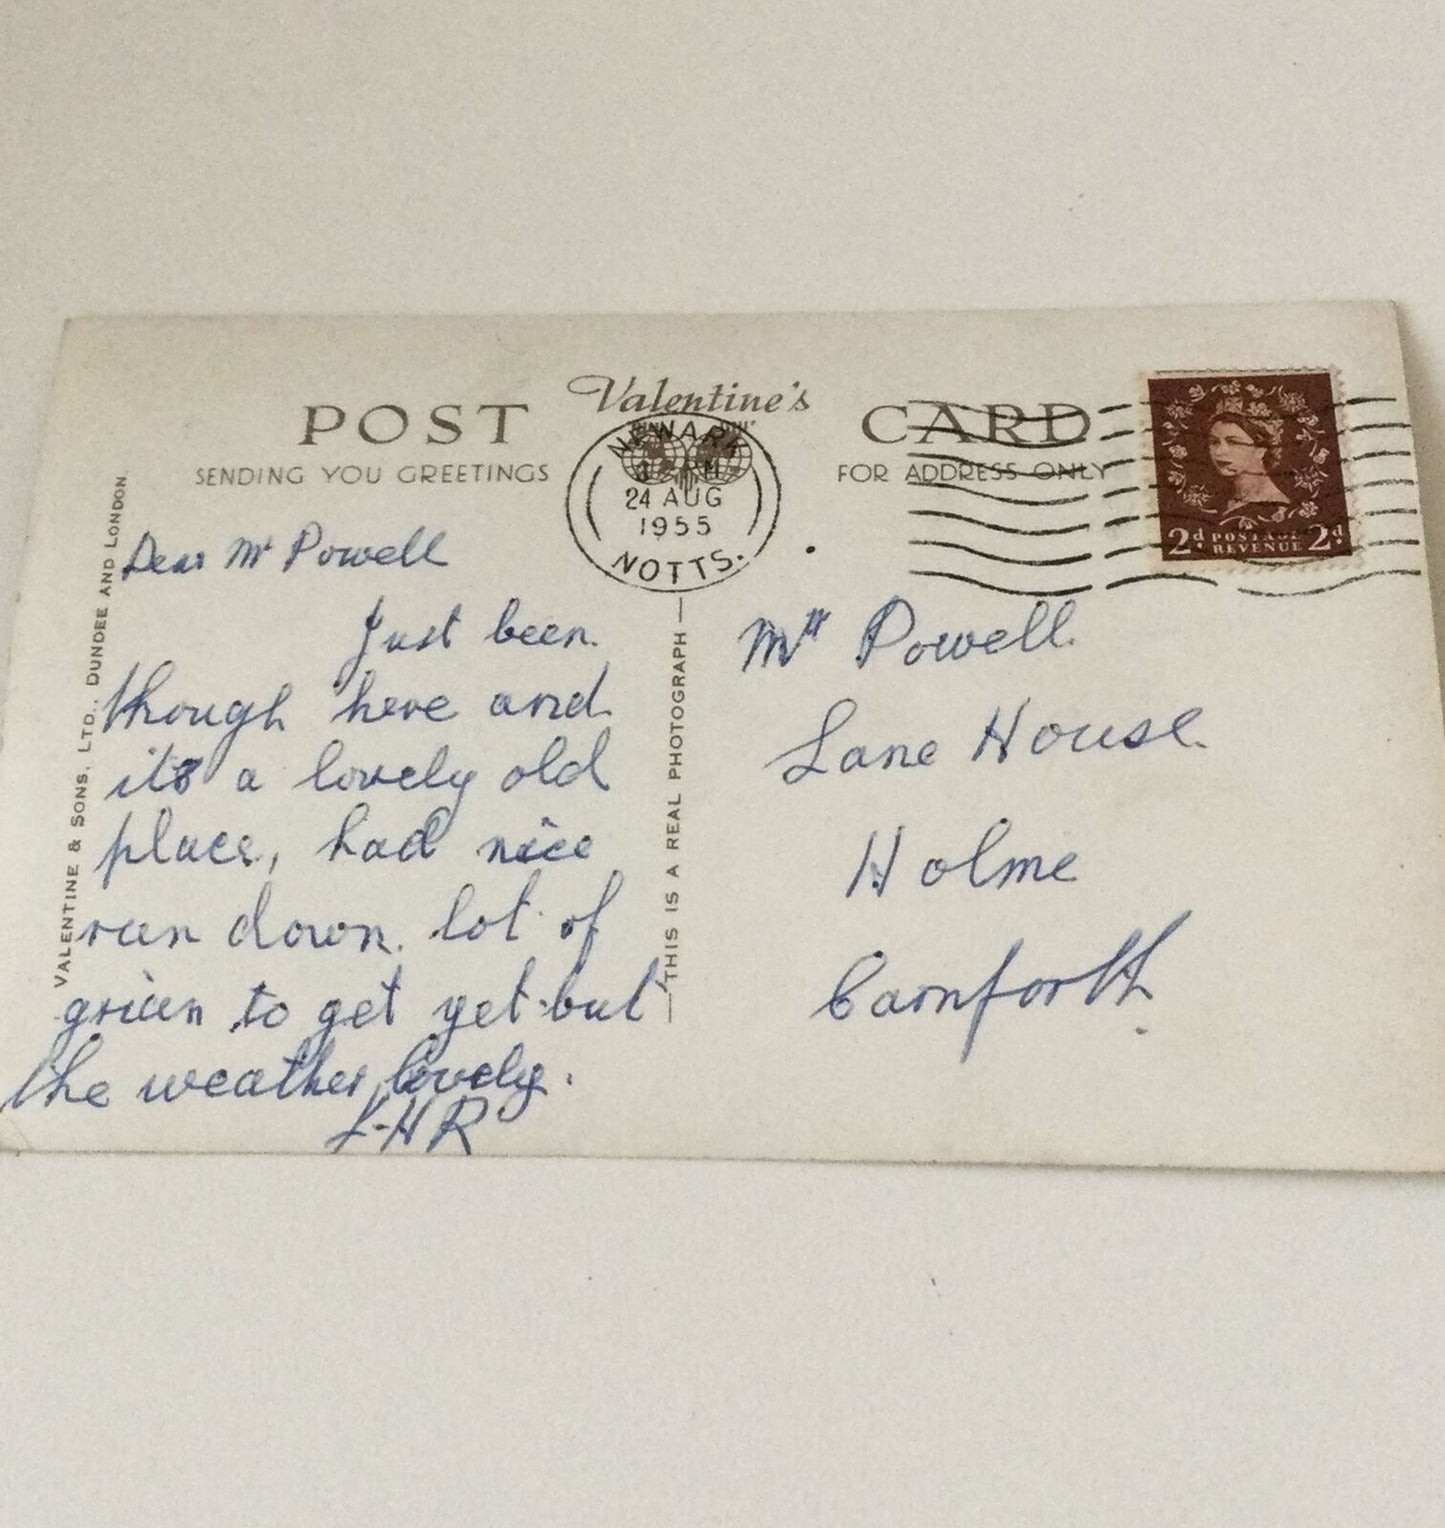 POST Valentine's CARD
SENDING YOU GREETINGS
FOR ADDRESS ONLY
NEWARK
24 AUG
1955
NOTTS.
2d POSTAGE 2d
REVENUE
VALENTINE & SONS, LTD., DUNDEE AND LONDON.
THIS IS A REAL PHOTOGRAPH
Dear Mr Powell
Just been
though here and
its a lovely old
place, had nice
run down. lot of
to get yet but
the weather lovely.
L-HR
Mr Powell.
Lane House.
Holme
Carnforth.